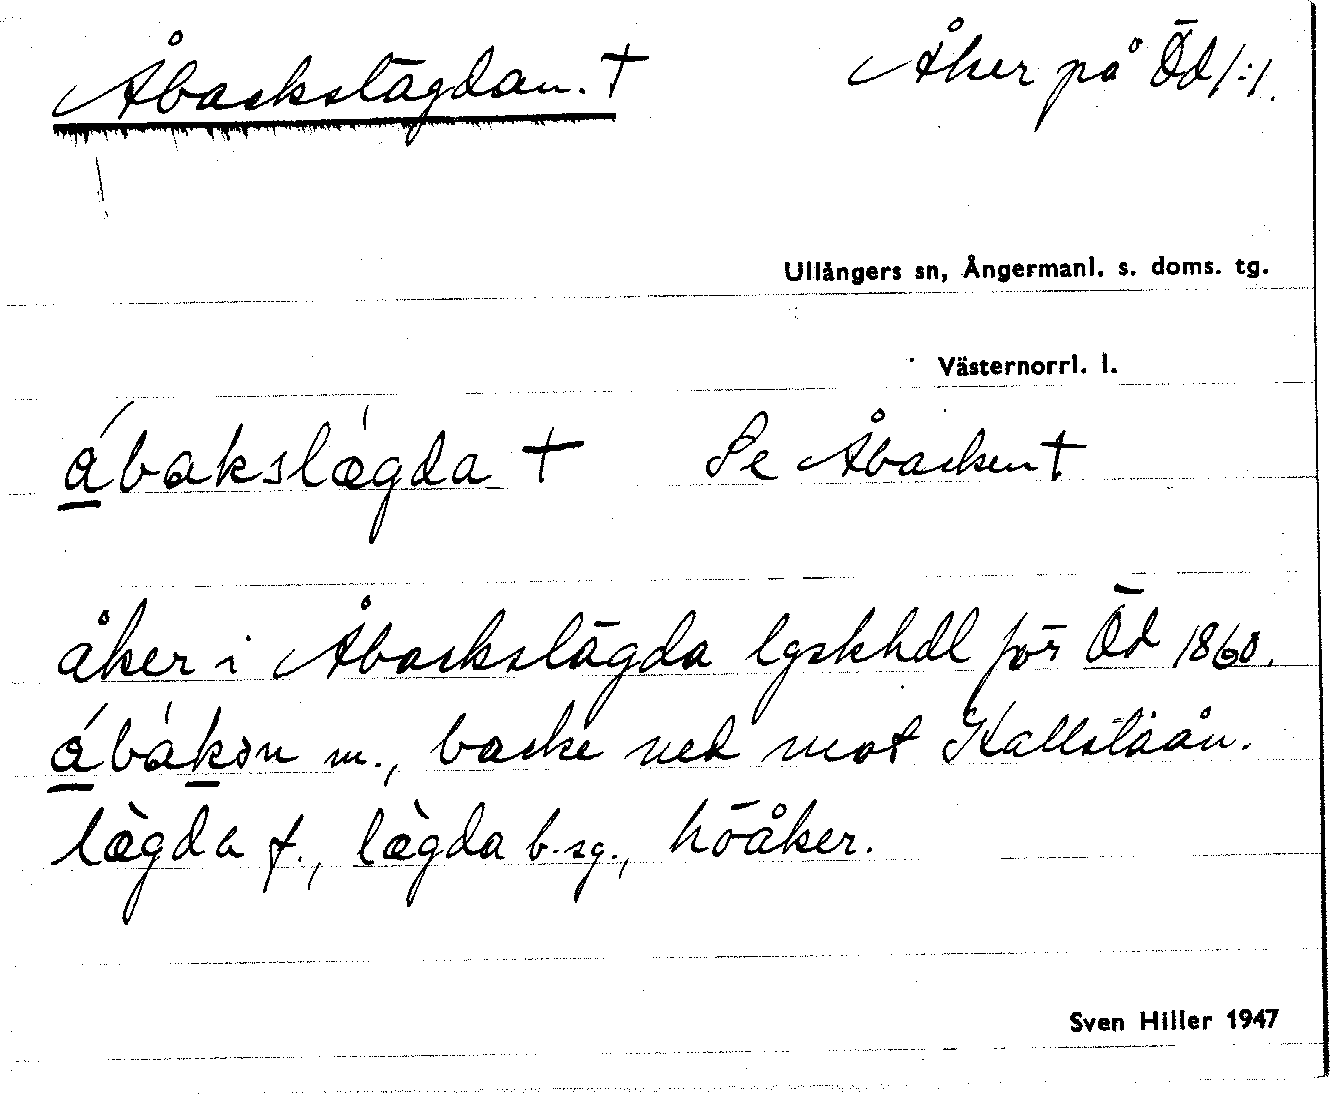 Åbackslägdan. † Åker på Öd 1:1.
Ullångers sn, Ångermanl. s. doms. tg.
Västernorrl. l.
ábakslægda † Se Åbacken †
åker i Åbackslägda lgskhdl för Öd 1860.
ábàkən m., backe ned mot Kallstaån.
lægda f., lægda b. sg., höåker.
Sven Hiller 1947